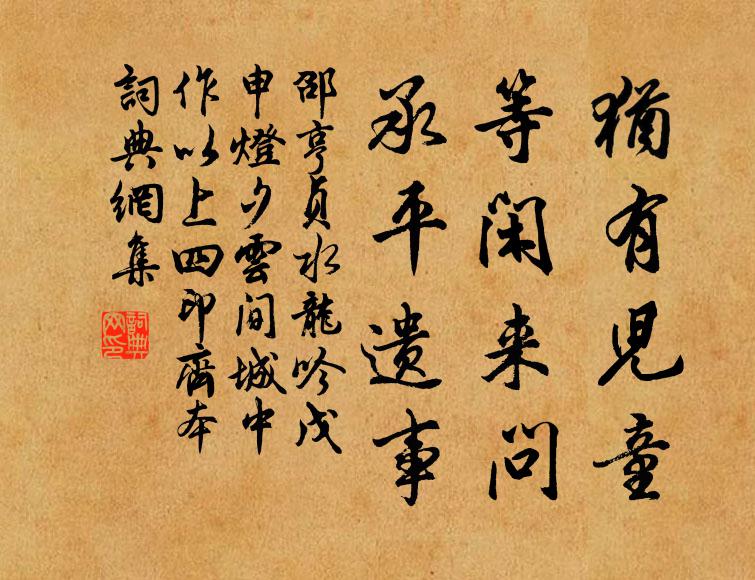 猶有兒童
等闲来問
承平遺事
邵亨貞水龍吟戊
申燈夕雲間城中
作以上四印齋本
詞典網集
詞典
网印